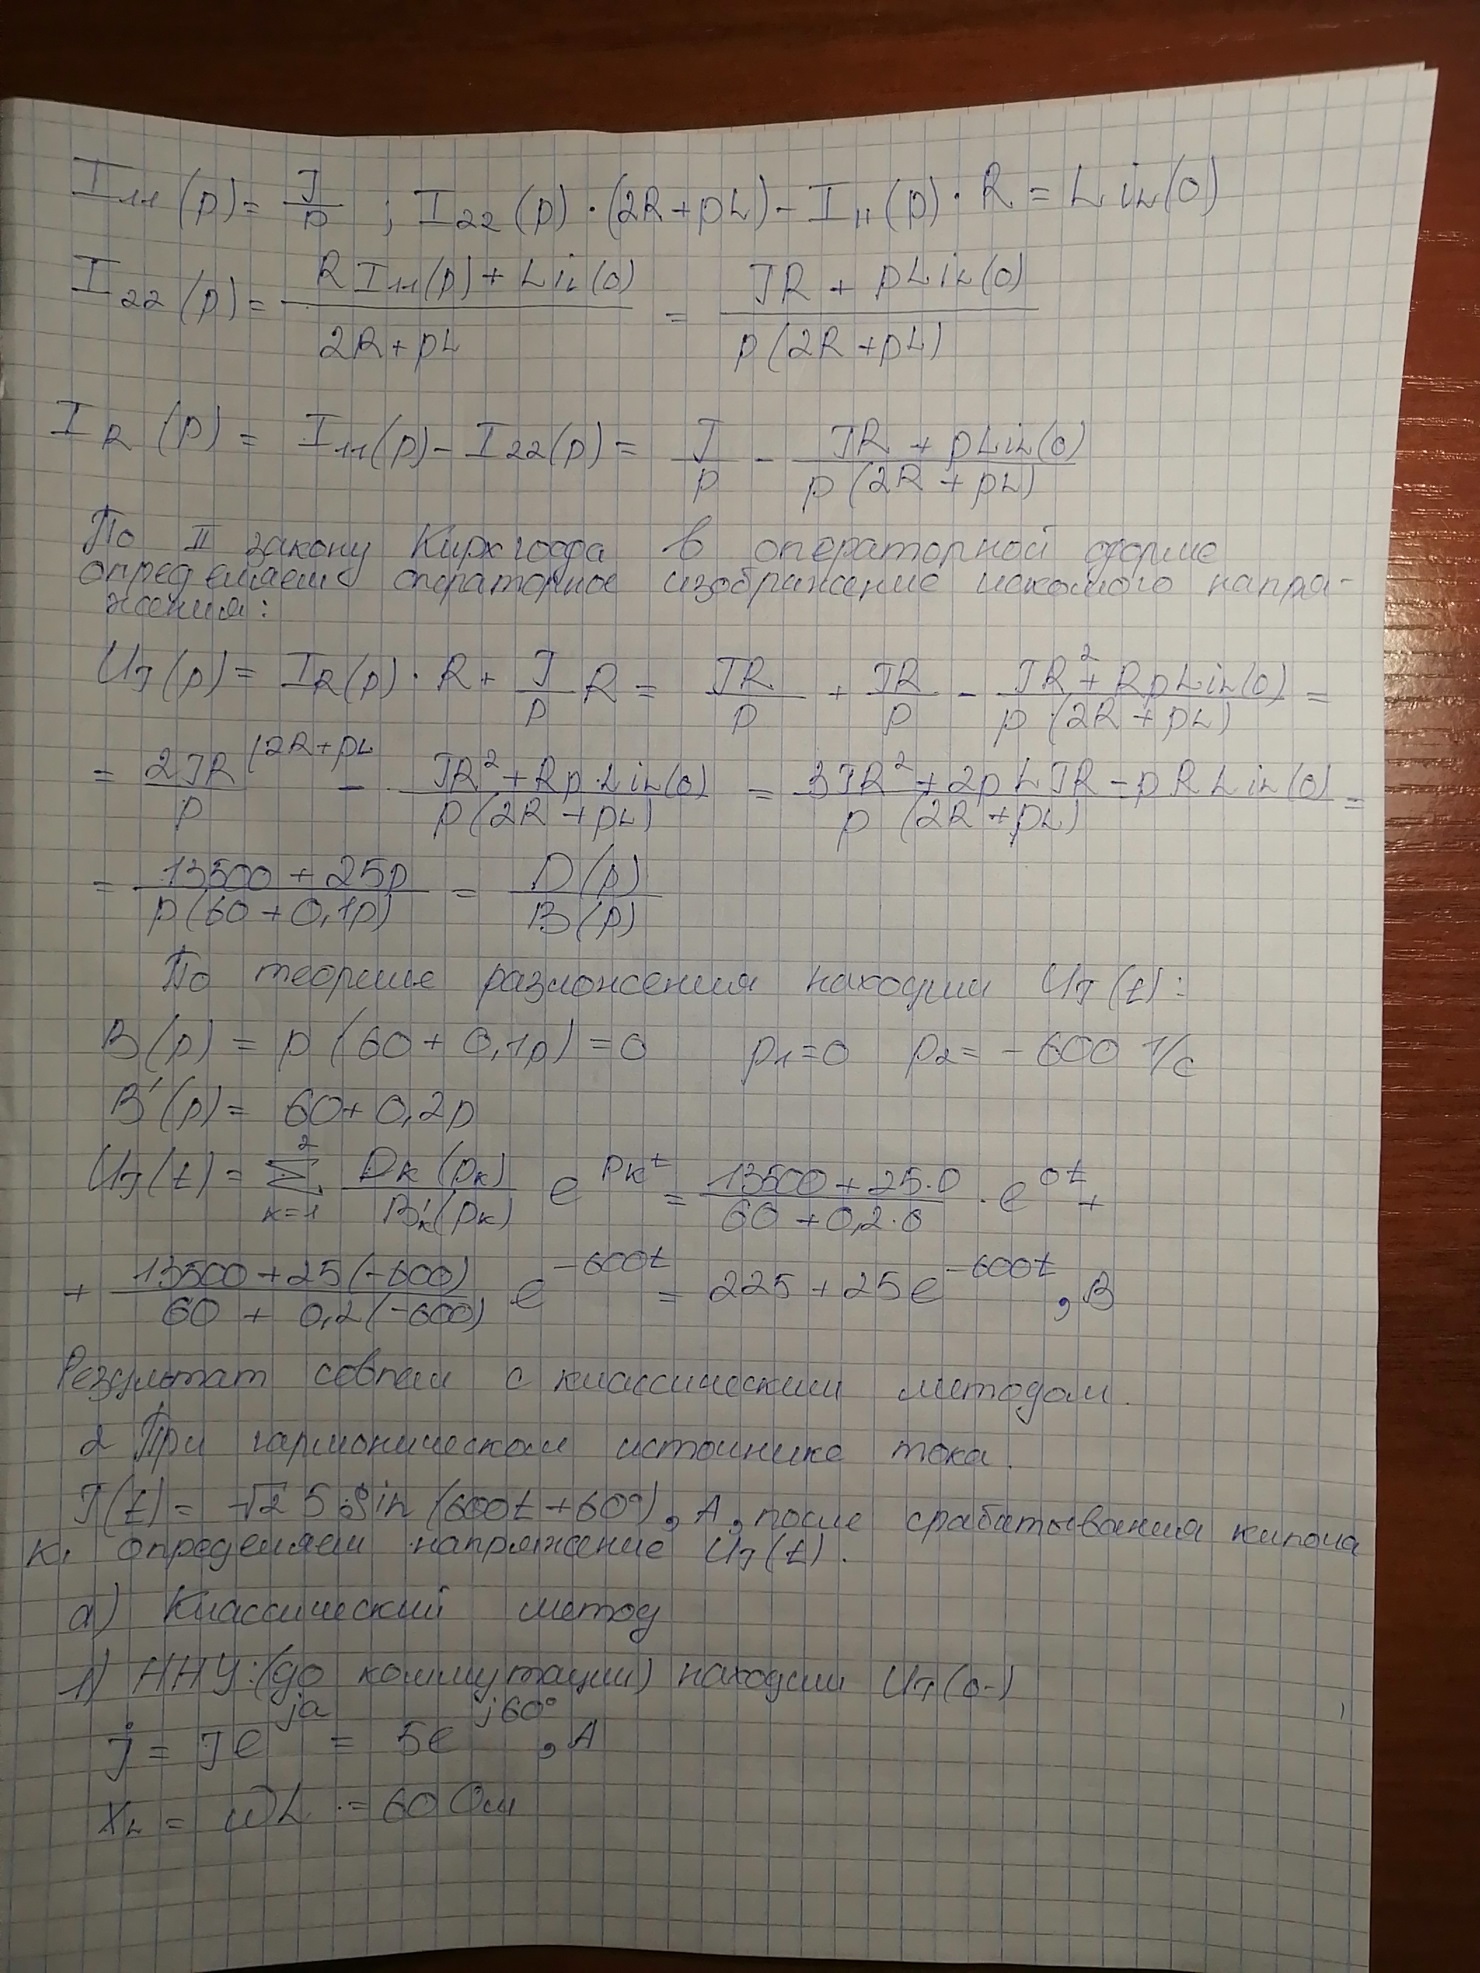 I₁₁(p) = J/p ; I₂₂(p)·(2R+pL) - I₁₁(p)·R = L iL(0)
I₂₂(p) = (R I₁₁(p) + L iL(0)) / (2R+pL) = (JR + pL iL(0)) / (p(2R+pL))
I_R(p) = I₁₁(p) - I₂₂(p) = J/p - (JR + pL iL(0)) / (p(2R+pL))
По II закону Кирхгофа в операторной форме
определяем операторное изображение искомого напря-
жения:
U_J(p) = I_R(p)·R + J/p R = JR/p + JR/p - (JR² + RpL iL(0)) / (p(2R+pL)) =
= 2JR(2R+pL / p - (JR² + RpL iL(0)) / (p(2R+pL)) = (3JR² + 2pLJR - pRL iL(0)) / (p(2R+pL)) =
= (13500 + 25p) / (p(60+0,1p)) = D(p) / B(p)
По теореме разложения находим U_J(t):
B(p) = p(60+0,1p) = 0 p₁=0 p₂= -600 1/с
B'(p) = 60+0,2p
U_J(t) = Σ_{k=1}^{2} Dк(pк)/B'к(pк) e^{pкt} = (13500+25·0)/(60+0,2·0) · e^{0t} +
+ (13500+25(-600))/(60+0,2(-600)) e^{-600t} = 225 + 25e^{-600t}, В
Результат совпал с классическим методом.
2 При гармоническом источнике тока.
J(t) = √2 5 sin(600t+60°), А, после срабатывания ключа
К. определяем напряжение U_J(t).
а) Классический метод
1) ННУ: (до коммутации) находим U_J(0-)
J̇ = Je^{ja} = 5e^{j60°}, А
X_L = ωL = 60 Ом